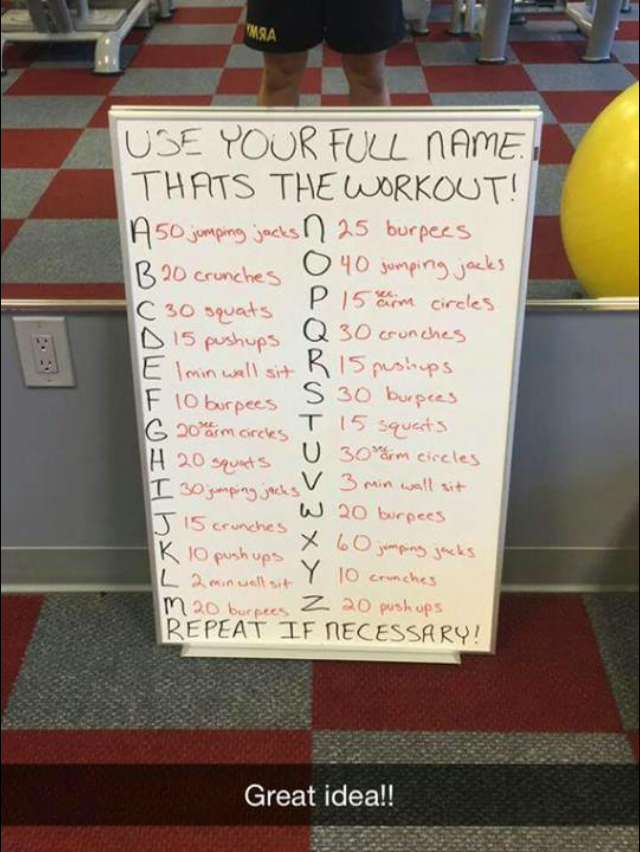 ARMY
USE YOUR FULL NAME.
THATS THE WORKOUT!
A 50 jumping jacks
B 20 crunches
C 30 squats
D 15 pushups
E 1 min wall sit
F 10 burpees
G 20 sec arm circles
H 20 squats
I 30 jumping jacks
J 15 crunches
K 10 push ups
L 2 min wall sit
M 20 burpees
N 25 burpees
O 40 jumping jacks
P 15 sec arm circles
Q 30 crunches
R 15 pushups
S 30 burpees
T 15 squats
U 30 sec arm circles
V 3 min wall sit
W 20 burpees
X 60 jumping jacks
Y 10 crunches
Z 20 push ups
REPEAT IF NECESSARY!
Great idea!!